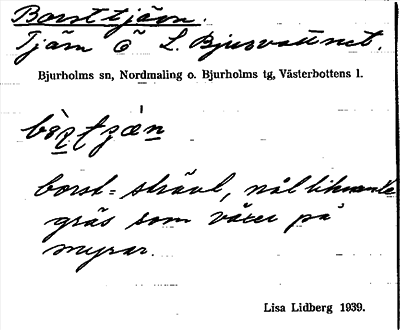 Borsttjärn.
Tjärn Ö L. Bjurvattnet.
Bjurholms sn, Nordmaling o. Bjurholms tg, Västerbottens l.
borst= strävt, nål liknande
gräs som växer på
myrar.
Lisa Lidberg 1939.